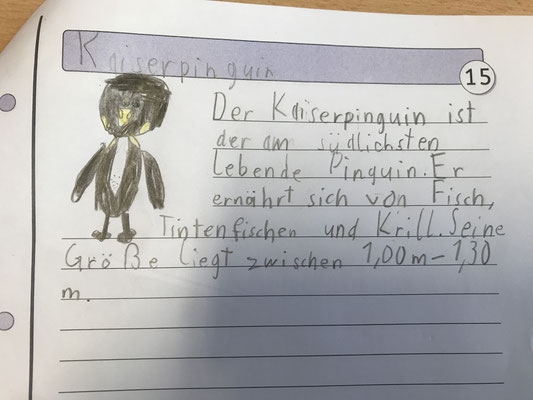 Kaiserpinguin
15
Der Kaiserpinguin ist
der am südlichsten
lebende Pinguin. Er
ernährt sich von Fisch,
Tintenfischen und Krill. Seine
Größe liegt zwischen 1,00m-1,30
m.